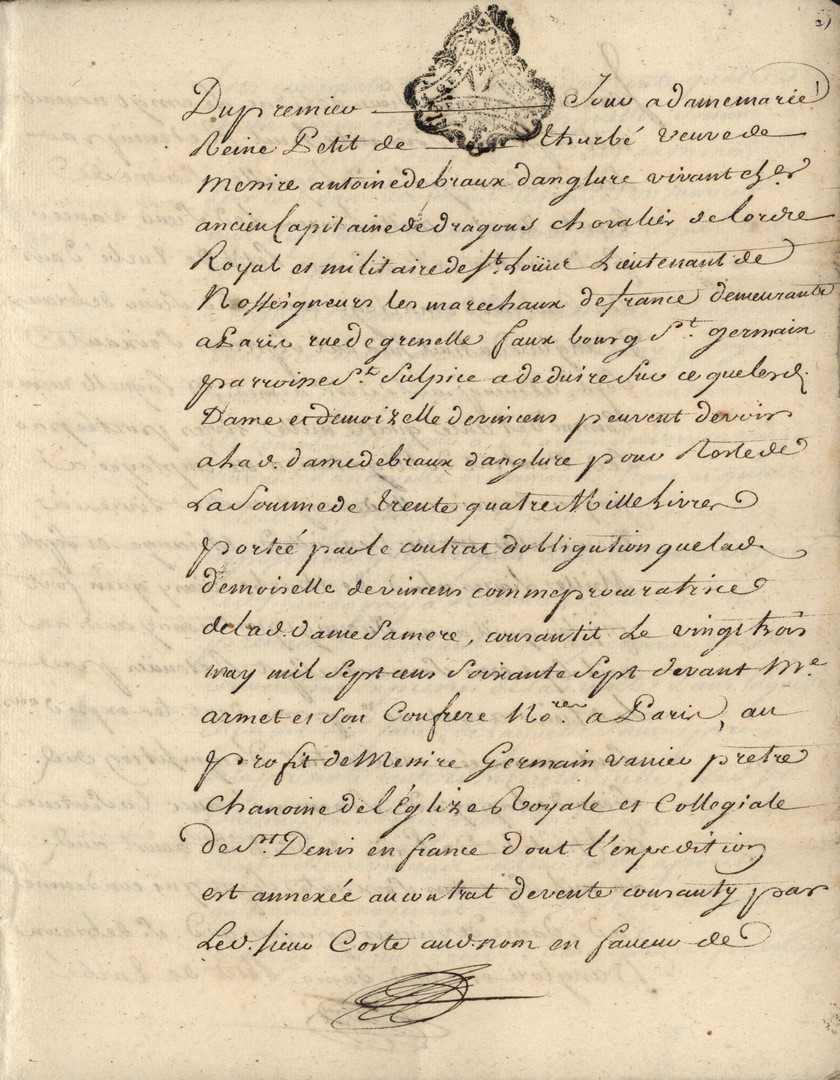 2)
Du premier Jour a dame marie
Reine Petit de Thurbé veuve de
Messire antoine debraux danglure vivant cher
ancien Capitaine de dragons chevalier de lordre
Royal et militaire de St. Loüis Lieutenant de
Nosseigneurs les marechaux de france demeurante
a Paris rue de grenelle faux bourg St. germain
parroisse St. Sulpice a deduire sur ce que lesd.
Dame et demoizelle devincens peuvent devoir
a lad. dame debraux danglure pour Reste de
La Somme de trente quatre Mille Livres
portée par le contrat dobligation que lad.
demoiselle devincens comme procuratrice
de lad. dame Sa mere, consantit Le vingt trois
may mil Sept cens Soixante Sept devant Me.
armet et Son Confrere Nores. a Paris, au
profit de Messire Germain vanier pretre
chanoine de l'Eglize Royale et Collegiale
de St. Denis en france dont l'expedition
est annexée au contrat de vente consanty par
Led. sieur Coste aud. nom en faveur de